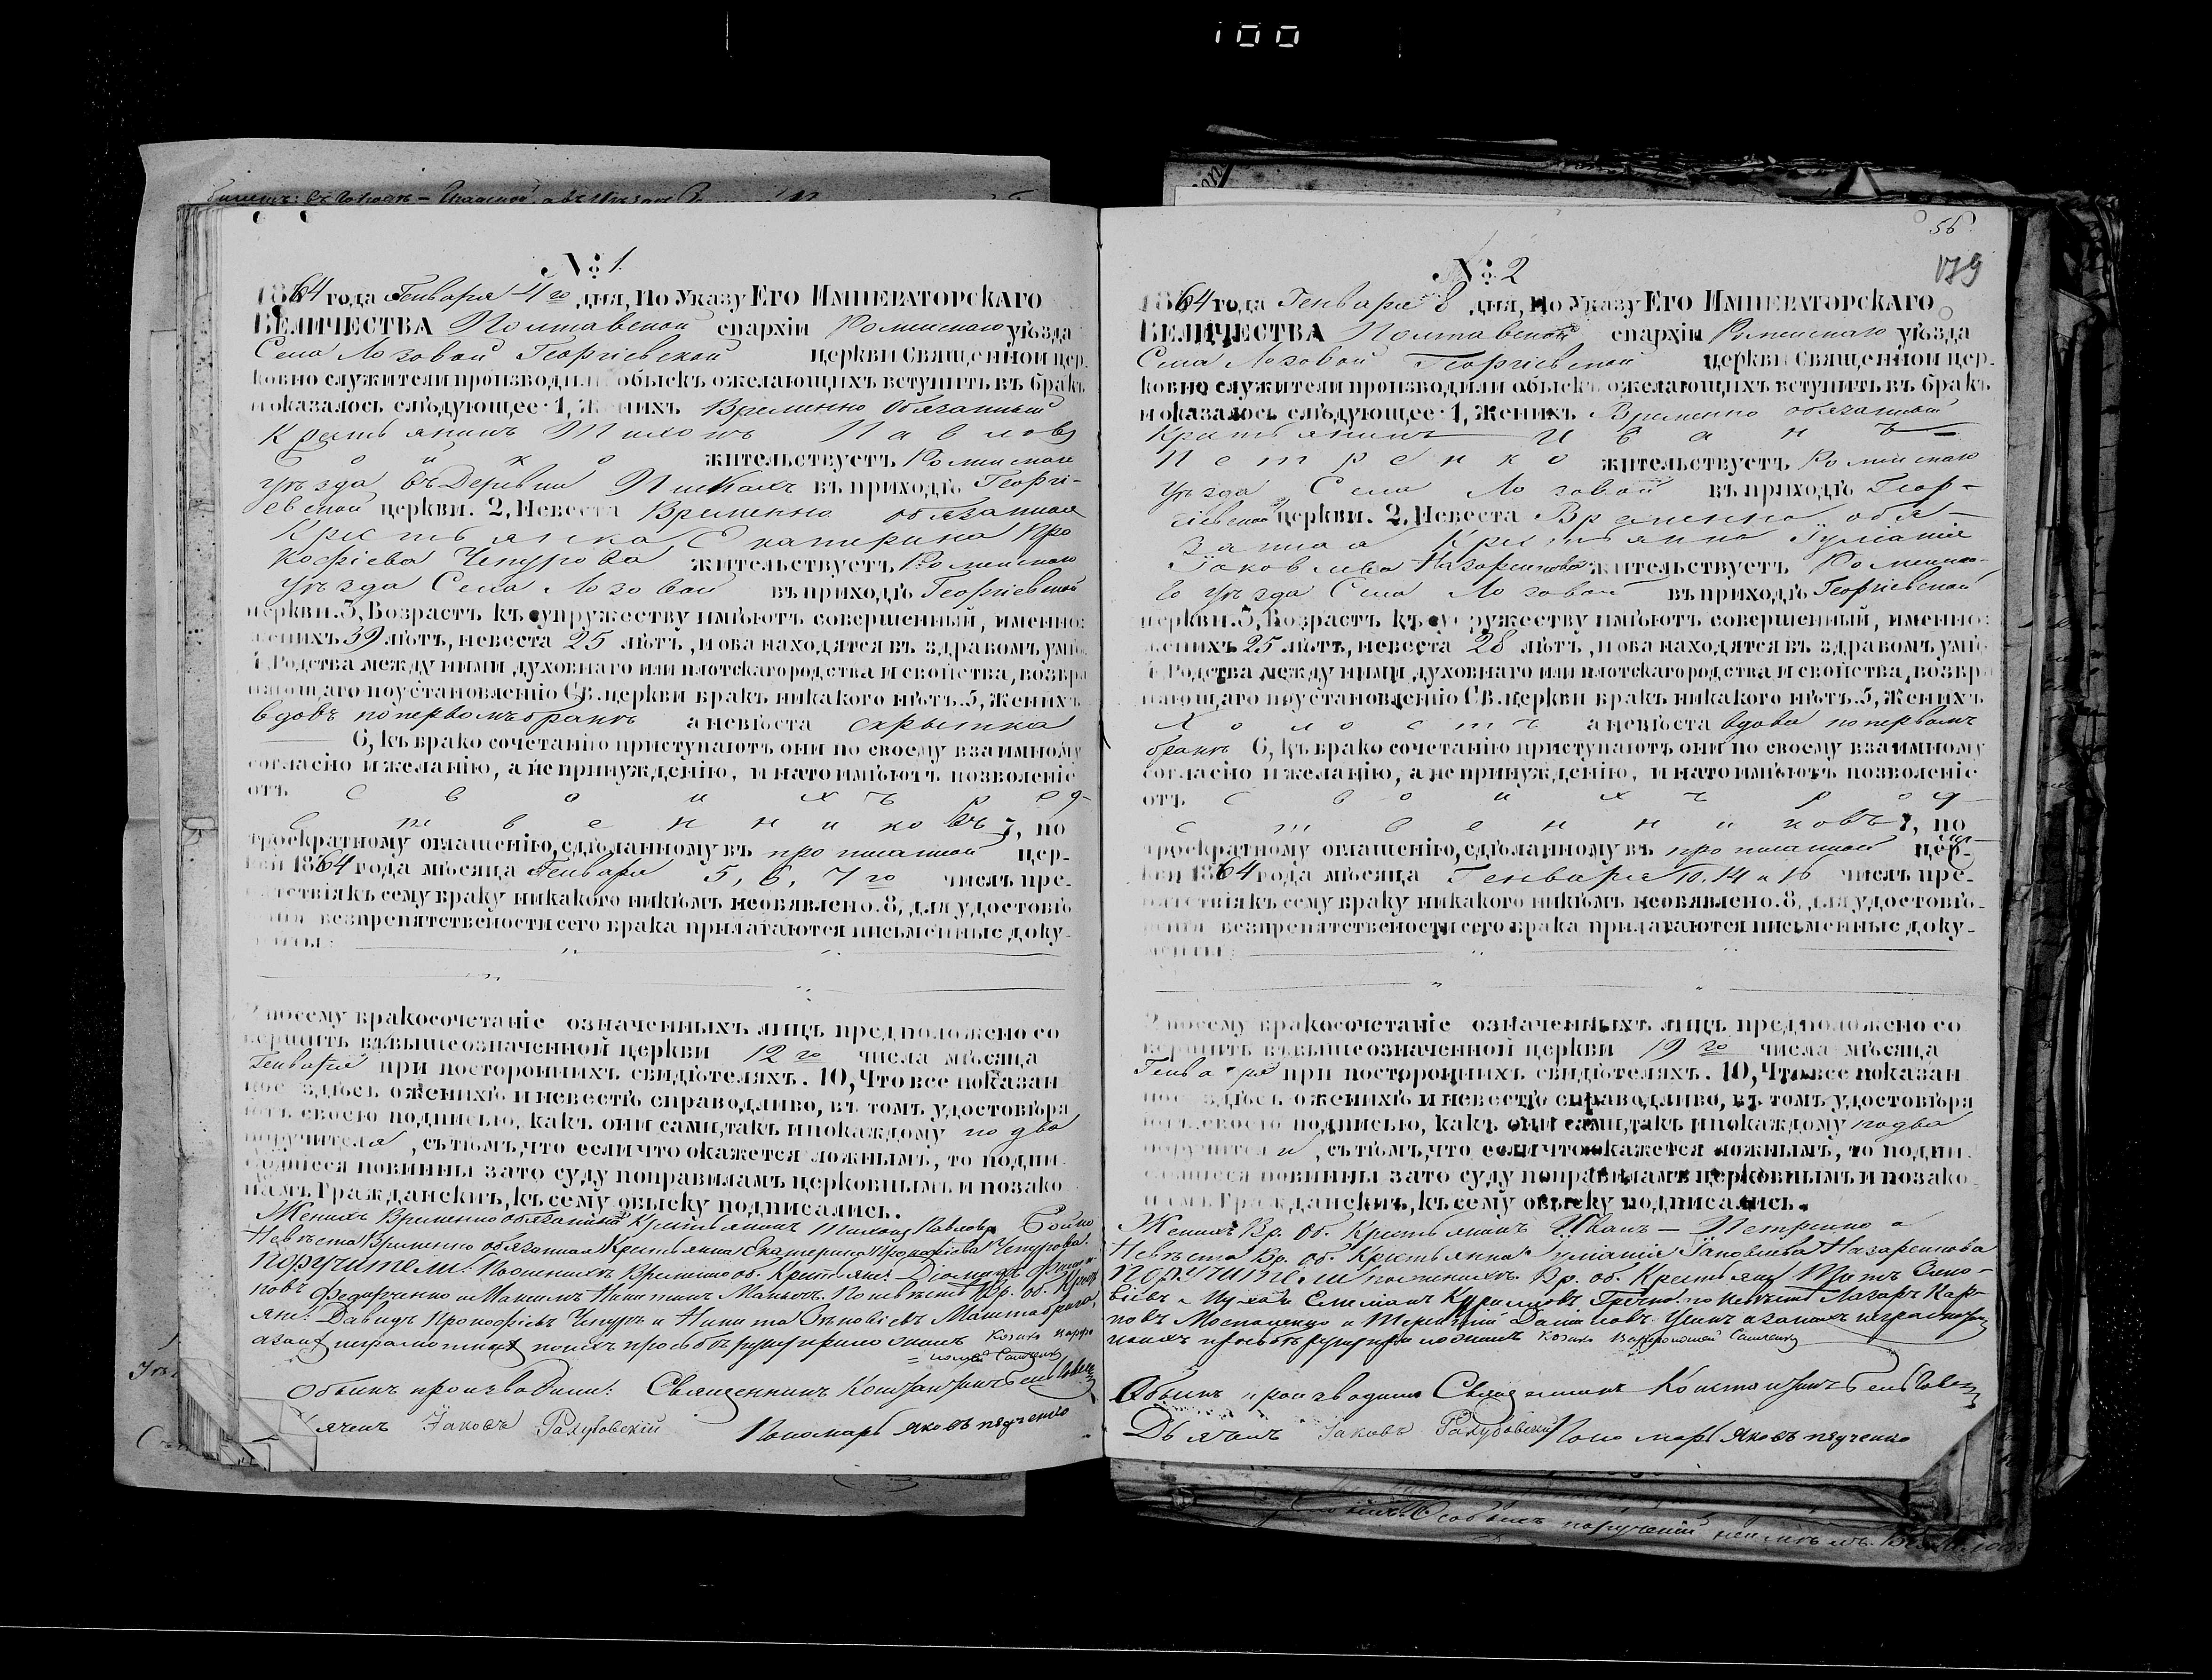 100
№ 1.
1864 года Генваря 4го дня, По Указу Его Императорскаго
Величества Полтавской епархіи Роменскаго уѣзда
Села Лозовой Георгіевской церкви Священной цер-
ковно служители производили обыскъ ожелающихъ вступить въ бракъ
и оказалось слѣдующее: 1, Женихъ Временно обязанный
Крестьянинъ Тихонъ Павловъ
Бойко жительствуетъ Роменскаго
уѣзда въ Деревни въ приходѣ Георгі-
евской церкви. 2, Невеста Временно обязанная
Крестьянка Екатерина Про
кофіева Чепурова жительствуетъ Роменскаго
уѣзда Села Лозовой въ приходѣ Георгіевской
церкви. 3, Возрастъ къ супружеству имѣютъ совершенный, именно:
женихъ 39 лѣтъ, невеста 25 лѣтъ, и оба находятся въ здравомъ умѣ.
4, Родства между ними духовнаго или плотскаго родства и свойства, возбра
няющаго по установленію Св. церкви бракъ никакого нѣтъ. 5, Женихъ
вдовъ по первомъ бракѣ а невѣста
6, къ брако сочетанію приступаютъ они по своему взаимному
согласію и желанію, а не принужденію, и на то имѣютъ позволеніе
отъ своихъ род-
ственниковъ 7, по
троекратному оглашенію, сдѣланному въ прописанной цер-
кви 1864 года мѣсяца Генваря 5, 6, 7го числъ пре-
пятствія къ сему браку никакого никѣмъ необявлено. 8, для удостовѣ
ренія безпрепятствености сего брака прилагаются письменные доку-
менты:
По сему бракосочетаніе означенныхъ лицъ предположено со
вершить въ вышеозначенной церкви 12го числа мѣсяца
Генваря при посторонныхъ свидѣтеляхъ. 10, Что все показан
ное здѣсь о женихѣ и невестѣ справодливо, въ томъ удостовѣря
ютъ своею подписью, какъ они сами, такъ и по каждому по два
поручителя, съ тѣмъ, что если что окажется ложнымъ, то подпи
савшіеся повинны за то суду по правиламъ церковнымъ и по зако
намъ Гражданскимъ, къ сему обыску подписались.
Женихъ Временнообязанный Крестьянинъ Тихонъ Павловъ Бойко
Невѣста Временно обязанная Крестьянка Екатерина Прокофіева Чепурова.
Поручители: По женихѣ Временно об. Крестьяне:
Федорченко и Никитинъ По невѣстѣ Вр. об. Крест
яне: Давидъ Прокофіевъ Чепуръ и Никита
Козакъ
Обыскъ производили: Священникъ Константинъ
Дьячекъ Іаковъ Пономарь Яковъ
56
179
№ 2
1864 года Генваря 8 дня, По Указу Его Императорскаго
Величества Полтавской епархіи Роменскаго уѣзда
Села Лозовой Георгіевской церкви Священной цер-
ковно служители производили обыскъ ожелающихъ вступить въ бракъ
и оказалось слѣдующее: 1, Женихъ Временно обязанный
Крестьянинъ Иванъ
Петренко жительствуетъ Роменскаго
уѣзда Села Лозовой въ приходѣ Геор-
гіевской церкви. 2, Невеста Временно обя-
занная Крестьянка Іуліанія
Іаковлева Назаренкова жительствуетъ Роменска-
го уѣзда Села Лозовой въ приходѣ Георгіевской
церкви. 3, Возрастъ къ супружеству имѣютъ совершенный, именно:
женихъ 25 лѣтъ, невеста 28 лѣтъ, и оба находятся въ здравомъ умѣ.
4, Родства между ними духовнаго или плотскаго родства и свойства, возбра
няющаго по установленію Св. церкви бракъ никакого нѣтъ. 5, Женихъ
Холостъ а невѣста вдова по первомъ
бракѣ 6, къ брако сочетанію приступаютъ они по своему взаимному
согласію и желанію, а не принужденію, и на то имѣютъ позволеніе
отъ своихъ род-
ственниковъ 7, по
троекратному оглашенію, сдѣланному въ прописанной цер-
кви 1864 года мѣсяца Генваря 10, 14 и числъ пре-
пятствія къ сему браку никакого никѣмъ необявлено. 8, для удостовѣ-
ренія безпрепятствености сего брака прилагаются письменные доку-
менты:
По сему бракосочетаніе означенныхъ лицъ предположено со
вершить въ вышеозначенной церкви 19го числа мѣсяца
Генваря при посторонныхъ свидѣтеляхъ. 10, Что все показан
ное здѣсь о женихѣ и невестѣ справодливо, въ томъ удостовѣря
ютъ своею подписью, какъ они сами, такъ и по каждому по два
поручителя, съ тѣмъ, что если что окажется ложнымъ, то подпи
савшіеся повинны за то суду по правиламъ церковнымъ и по зако
намъ Гражданскимъ, къ сему обыску подписались.
Женихъ Вр. Об. Крестьянинъ Иванъ Петренко а
Невѣста Вр. об. Крестьянка Іуліанія Іаковлева Назаренкова
Поручители по женихѣ: Вр. об. Крестьяне Титъ
по невѣстѣ Лазарь Кар-
повъ и
Козакъ
Обыскъ производили Священникъ Константинъ
Дьячекъ Іаковъ Пономарь Яковъ